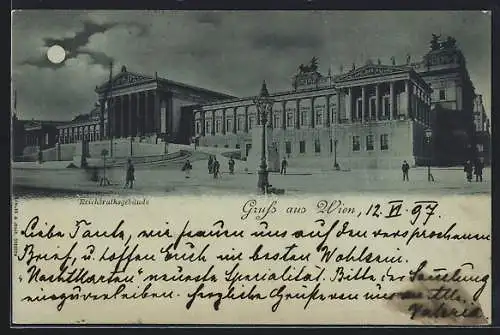 Reichsrathsgebäude
Gruss aus Wien, 12. VI. 97.
Liebe Tante, wir freuen uns auf den versprochenen
Brief, u. hoffen Euch im besten Wohlsein.
"Nachtkarten" neueste Specialität. Bitte der Sammlung
einzuverleiben. Herzliche Grüße von uns allen
Valerie